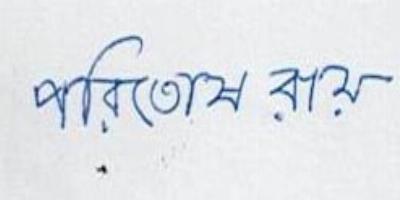 পরিতোষ রায়